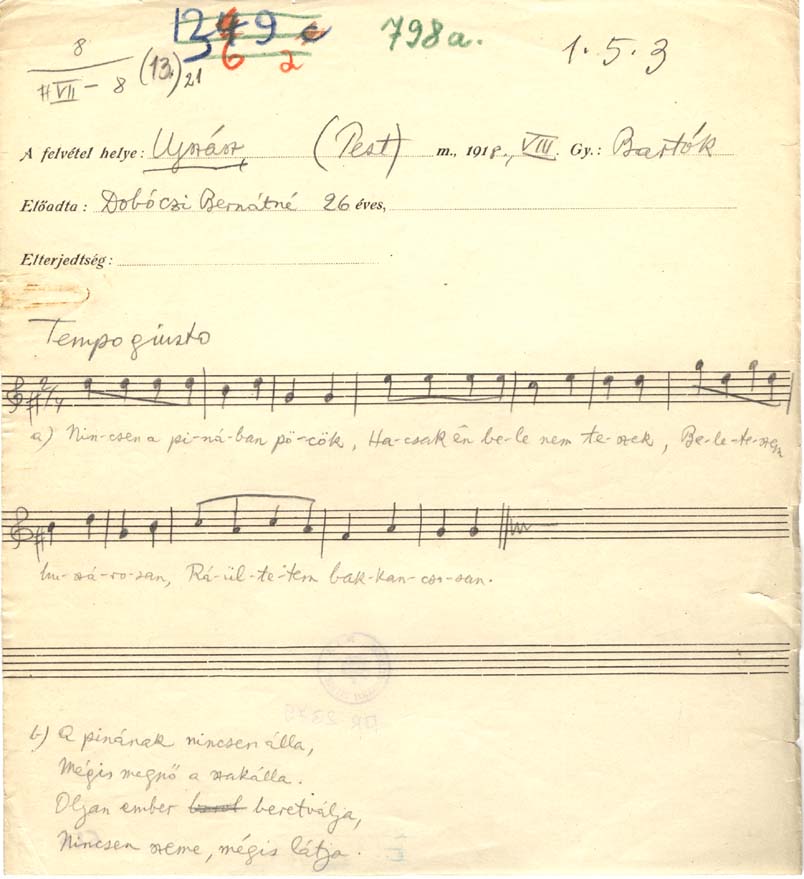 1249 c
6 2
798a.
1.5.3
8
VII – 8 (13.) 21
A felvétel helye: Ujszász, (Pest) m., 1918., VIII. Gy.: Bartók
Előadta: Dobóczi Bernátné 26 éves,
Elterjedtség:
Tempo giusto
2/4
a) Nin-csen a pi-ná-ban pö-cök, Ha-csak én be-le nem te-szek, Be-le-te-szem
hu-szá-ro-san, Rá-ül-te-tem bak-kan-cso-san.
b) A pinának nincsen álla,
Mégis megnő a szakálla.
Olyan ember beretválja,
Nincsen szeme, mégis látja.